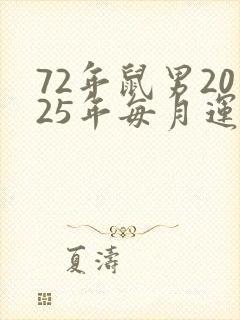 72年鼠男20
25年每月運
夏濤